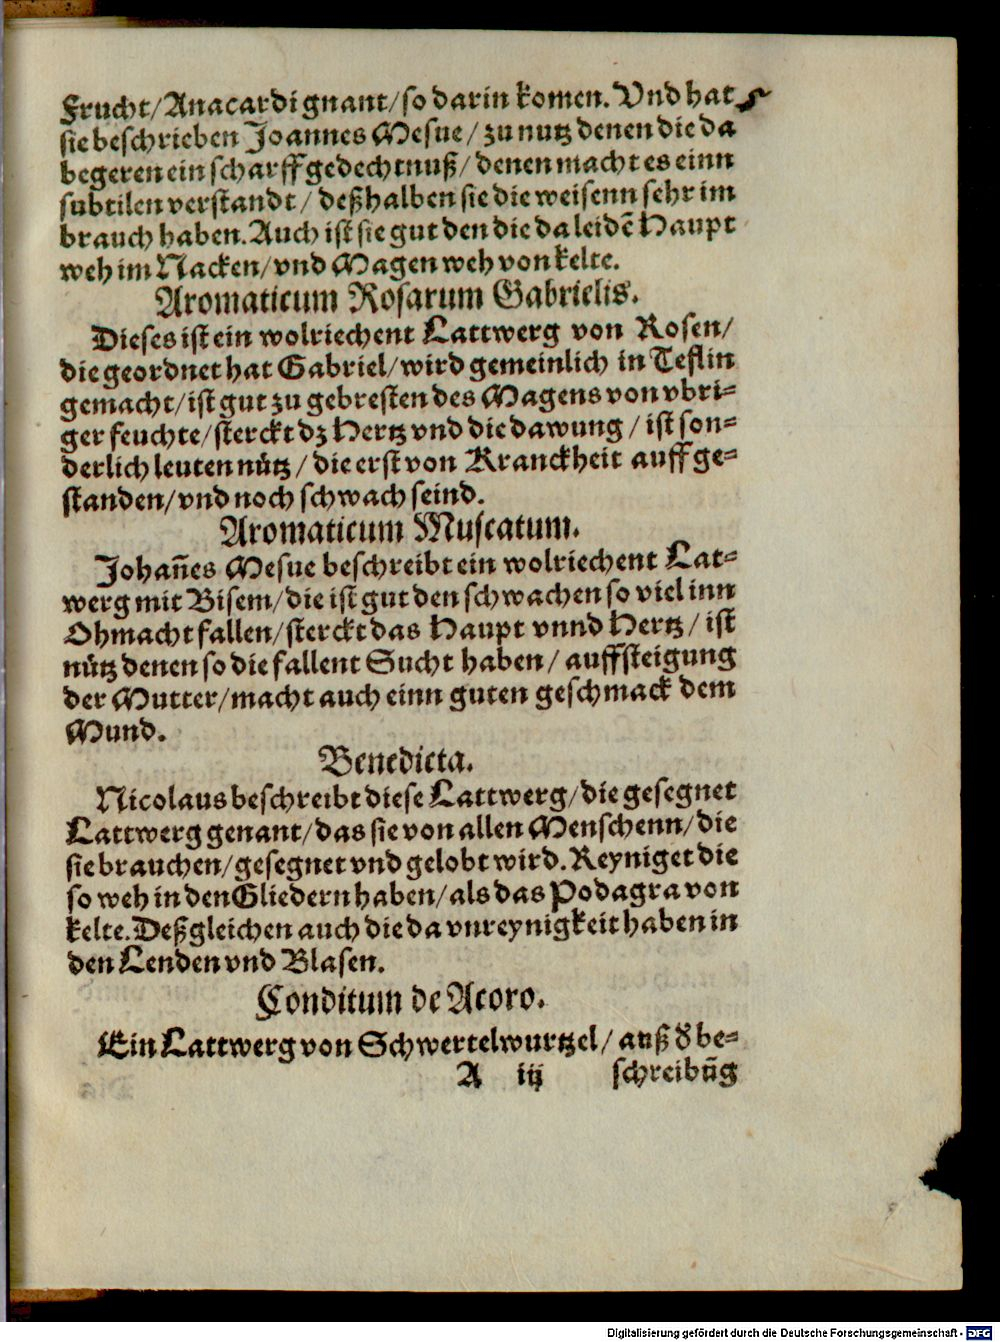 Frucht/Anacardi gnant/so darin komen. Vnd hat
sie beschrieben Joannes Mesue/ zu nutz denen die da
begeren ein scharff gedechtnuß/ denen macht es einn
subtilen verstandt/ deßhalben sie die weisenn sehr im
brauch haben. Auch ist sie gut den die da leidē Haupt
weh im Nacken/vnd Magen weh von kelte.
Aromaticum Rosarum Gabrielis.
Dieses ist ein wolriechent Lattwerg von Rosen/
die geordnet hat Gabriel/wird gemeinlich in Teflin
gemacht/ist gut zu gebresten des Magens von vbri-
ger feuchte/sterckt dz Hertz vnd die dawung/ist son-
derlich leuten nütz/die erst von Kranckheit auff ge-
standen/vnd noch schwach seind.
Aromaticum Muscatum.
Johañes Mesue beschreibt ein wolriechent Lat-
werg mit Bisem/die ist gut den schwachen so viel inn
Ohmacht fallen/sterckt das Haupt vnnd Hertz/ist
nütz denen so die fallent Sucht haben/auffsteigung
der Mutter/macht auch einn guten geschmack dem
Mund.
Benedicta.
Nicolaus beschreibt diese Lattwerg/die gesegnet
Lattwerg genant/das sie von allen Menschenn/die
sie brauchen/gesegnet vnd gelobt wird. Reyniget die
so weh in den Gliedern haben/als das Podagra von
kelte. Deßgleichen auch die da vnreynigkeit haben in
den Lenden vnd Blasen.
Conditum de Acoro.
Ein Lattwerg von Schwertelwurtzel/auß d' be-
A iij schreibūg
Digitalisierung gefördert durch die Deutsche Forschungsgemeinschaft - DFG